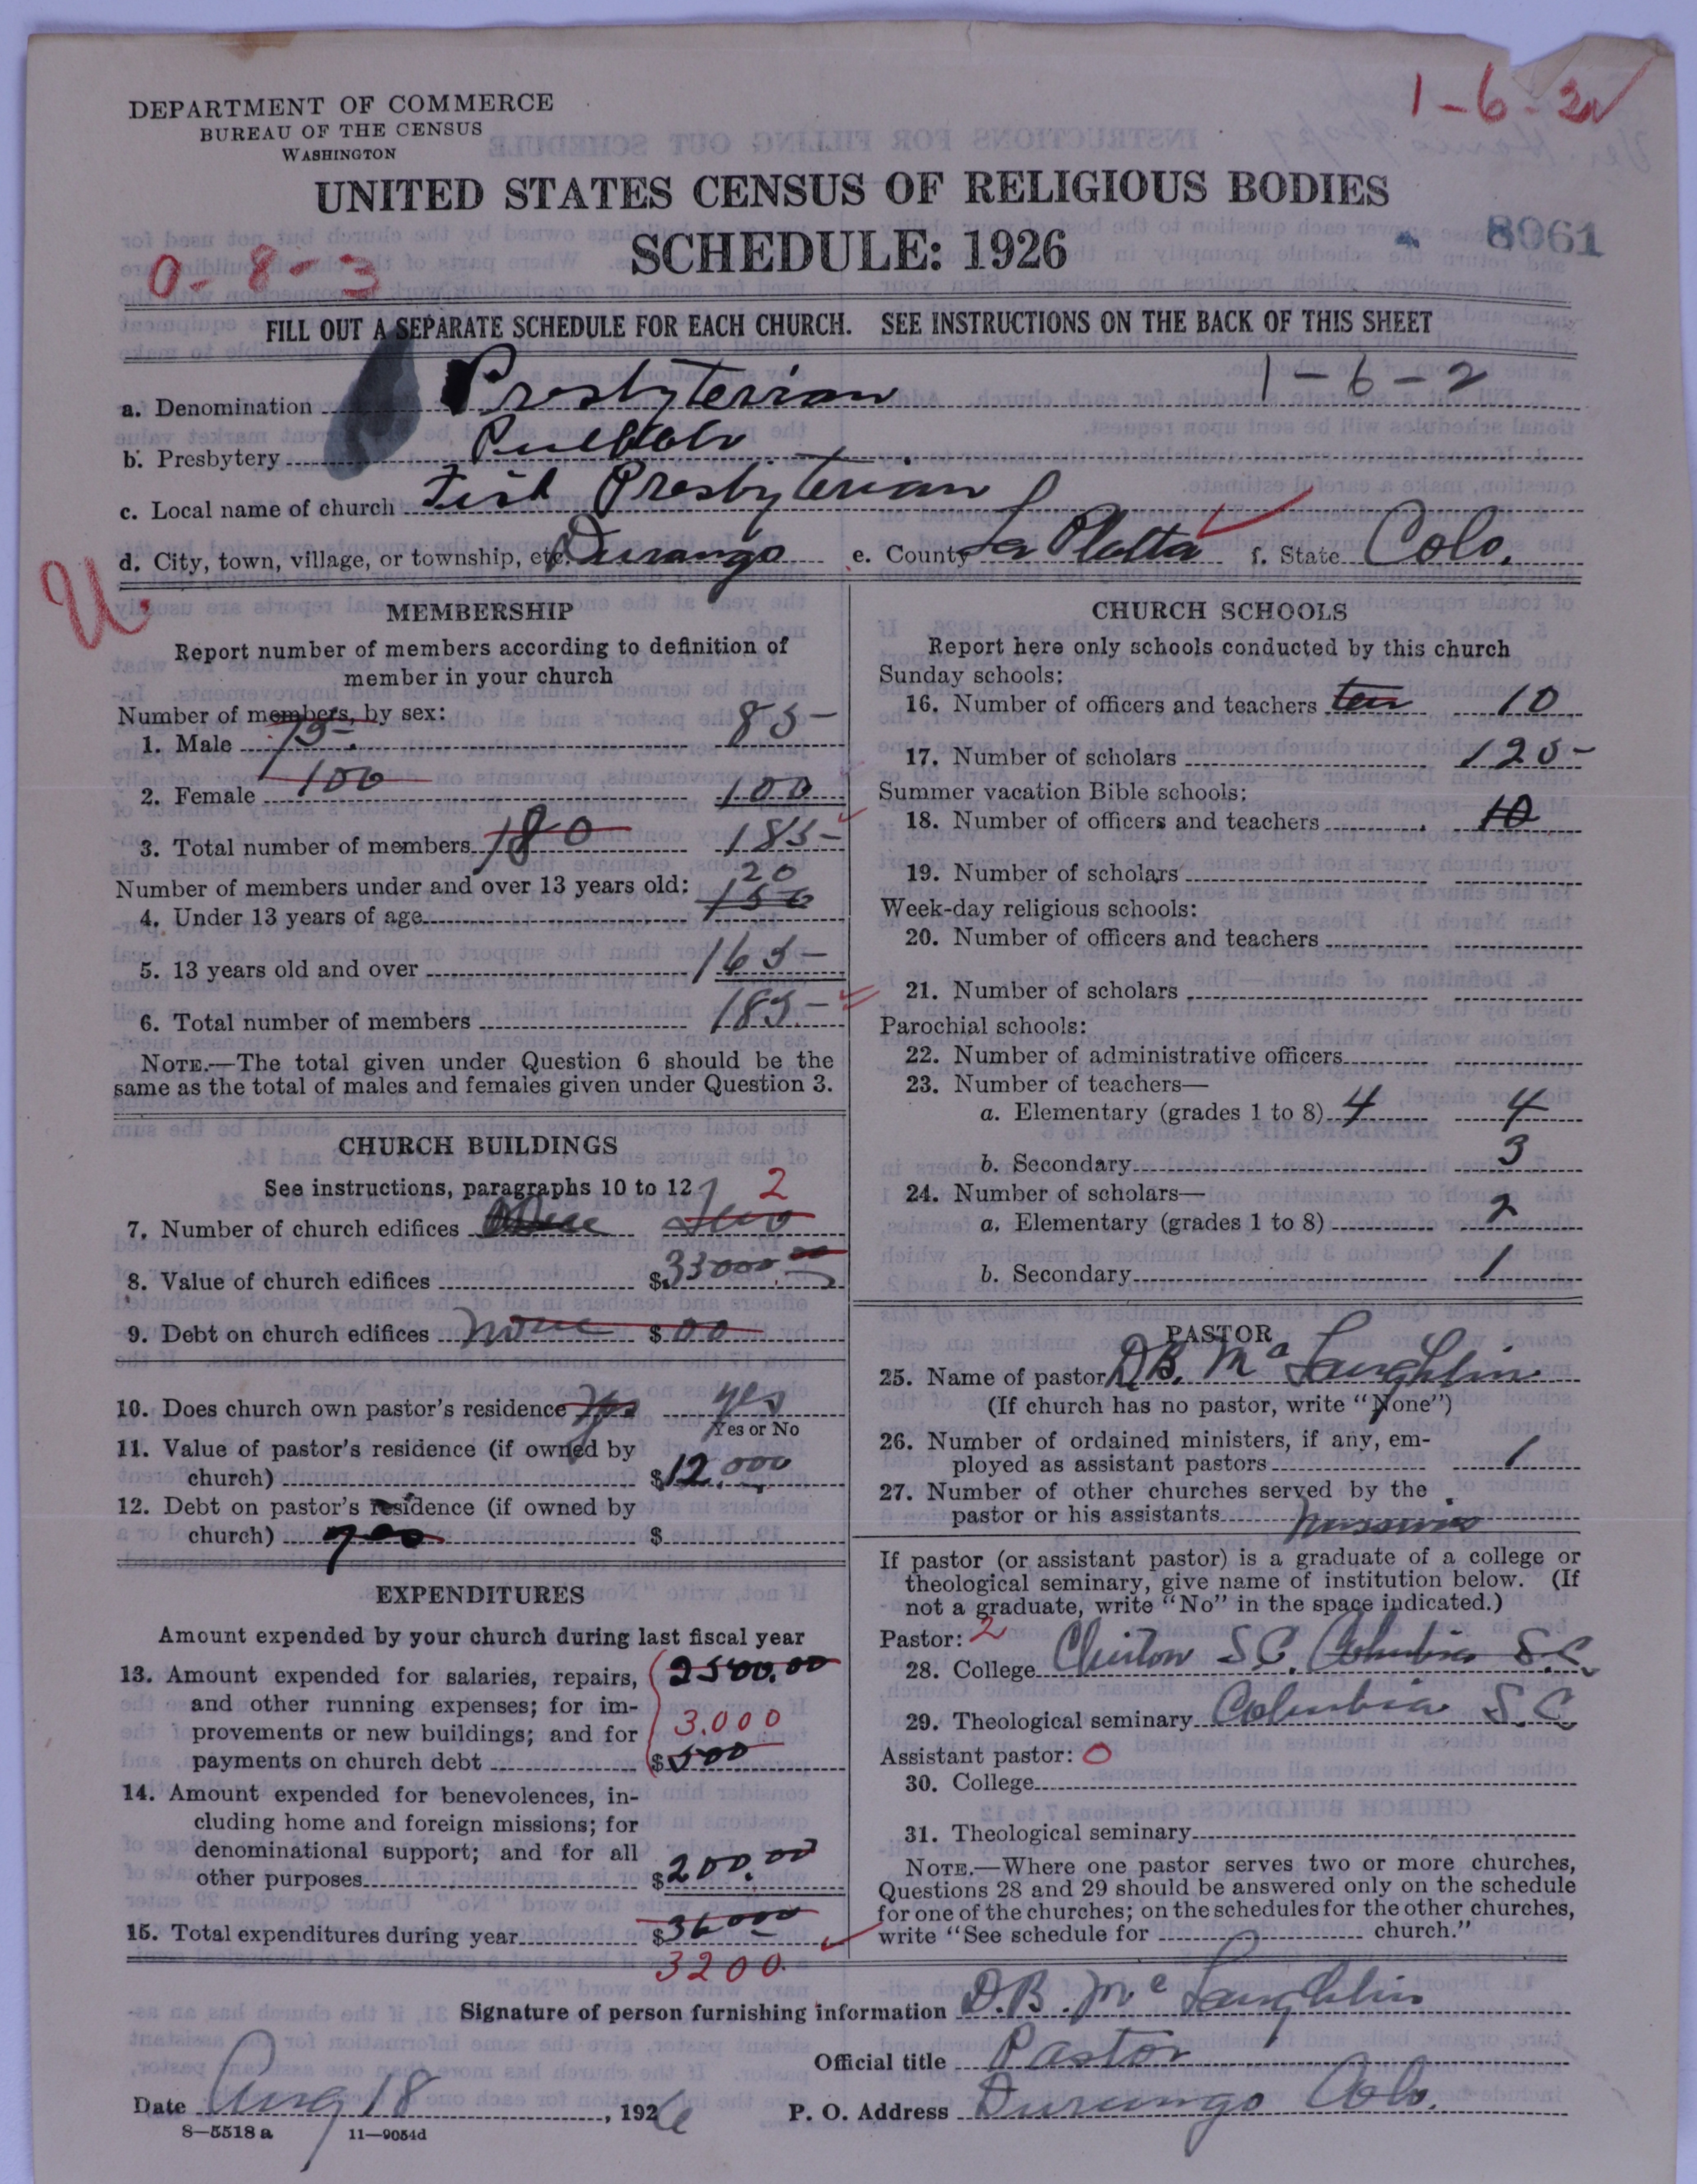 1-6-2
DEPARTMENT OF COMMERCE
BUREAU OF THE CENSUS
WASHINGTON
UNITED STATES CENSUS OF RELIGIOUS BODIES
SCHEDULE: 1926
8061
0-8-3
FILL OUT A SEPARATE SCHEDULE FOR EACH CHURCH. SEE INSTRUCTIONS ON THE BACK OF THIS SHEET
a. Denomination Presbyterian 1-6-2
b. Presbytery Pueblo
c. Local name of church First Presbyterian
d. City, town, village, or township, etc. Durango e. County La Platta f. State Colo.
U.
MEMBERSHIP
Report number of members according to definition of
member in your church
Number of members, by sex:
1. Male 75 85
2. Female 100 100
3. Total number of members 180 185
Number of members under and over 13 years old: 20
4. Under 13 years of age 150
5. 13 years old and over 165
6. Total number of members 185
NOTE.—The total given under Question 6 should be the
same as the total of males and females given under Question 3.
CHURCH BUILDINGS
See instructions, paragraphs 10 to 12 2
7. Number of church edifices Two
8. Value of church edifices $33000 00
9. Debt on church edifices none $ 00
10. Does church own pastor's residence Yes yes
Yes or No
11. Value of pastor's residence (if owned by
church) $12.000
12. Debt on pastor's residence (if owned by
church) $
EXPENDITURES
Amount expended by your church during last fiscal year
13. Amount expended for salaries, repairs, 2500.00
and other running expenses; for im-
provements or new buildings; and for 3.000
payments on church debt $500
14. Amount expended for benevolences, in-
cluding home and foreign missions; for
denominational support; and for all
other purposes $200.00
15. Total expenditures during year $36000
3200.
CHURCH SCHOOLS
Report here only schools conducted by this church
Sunday schools:
16. Number of officers and teachers ten 10
17. Number of scholars 125
Summer vacation Bible schools:
18. Number of officers and teachers 10
19. Number of scholars
Week-day religious schools:
20. Number of officers and teachers
21. Number of scholars
Parochial schools:
22. Number of administrative officers
23. Number of teachers—
a. Elementary (grades 1 to 8) 4 4
b. Secondary 3
24. Number of scholars—
a. Elementary (grades 1 to 8) 2
b. Secondary 1
PASTOR
25. Name of pastor D.B. McLaughlin
(If church has no pastor, write "None")
26. Number of ordained ministers, if any, em-
ployed as assistant pastors 1
27. Number of other churches served by the
pastor or his assistants
If pastor (or assistant pastor) is a graduate of a college or
theological seminary, give name of institution below. (If
not a graduate, write "No" in the space indicated.)
Pastor: 2
28. College Clinton S.C. Columbia S.C.
29. Theological seminary Columbia S.C.
Assistant pastor: 0
30. College
31. Theological seminary
NOTE.—Where one pastor serves two or more churches,
Questions 28 and 29 should be answered only on the schedule
for one of the churches; on the schedules for the other churches,
write "See schedule for church."
Signature of person furnishing information D.B. McLaughlin
Official title Pastor
Date Aug 18, 1926 P. O. Address Durango Colo.
8—5518 a 11—9054d